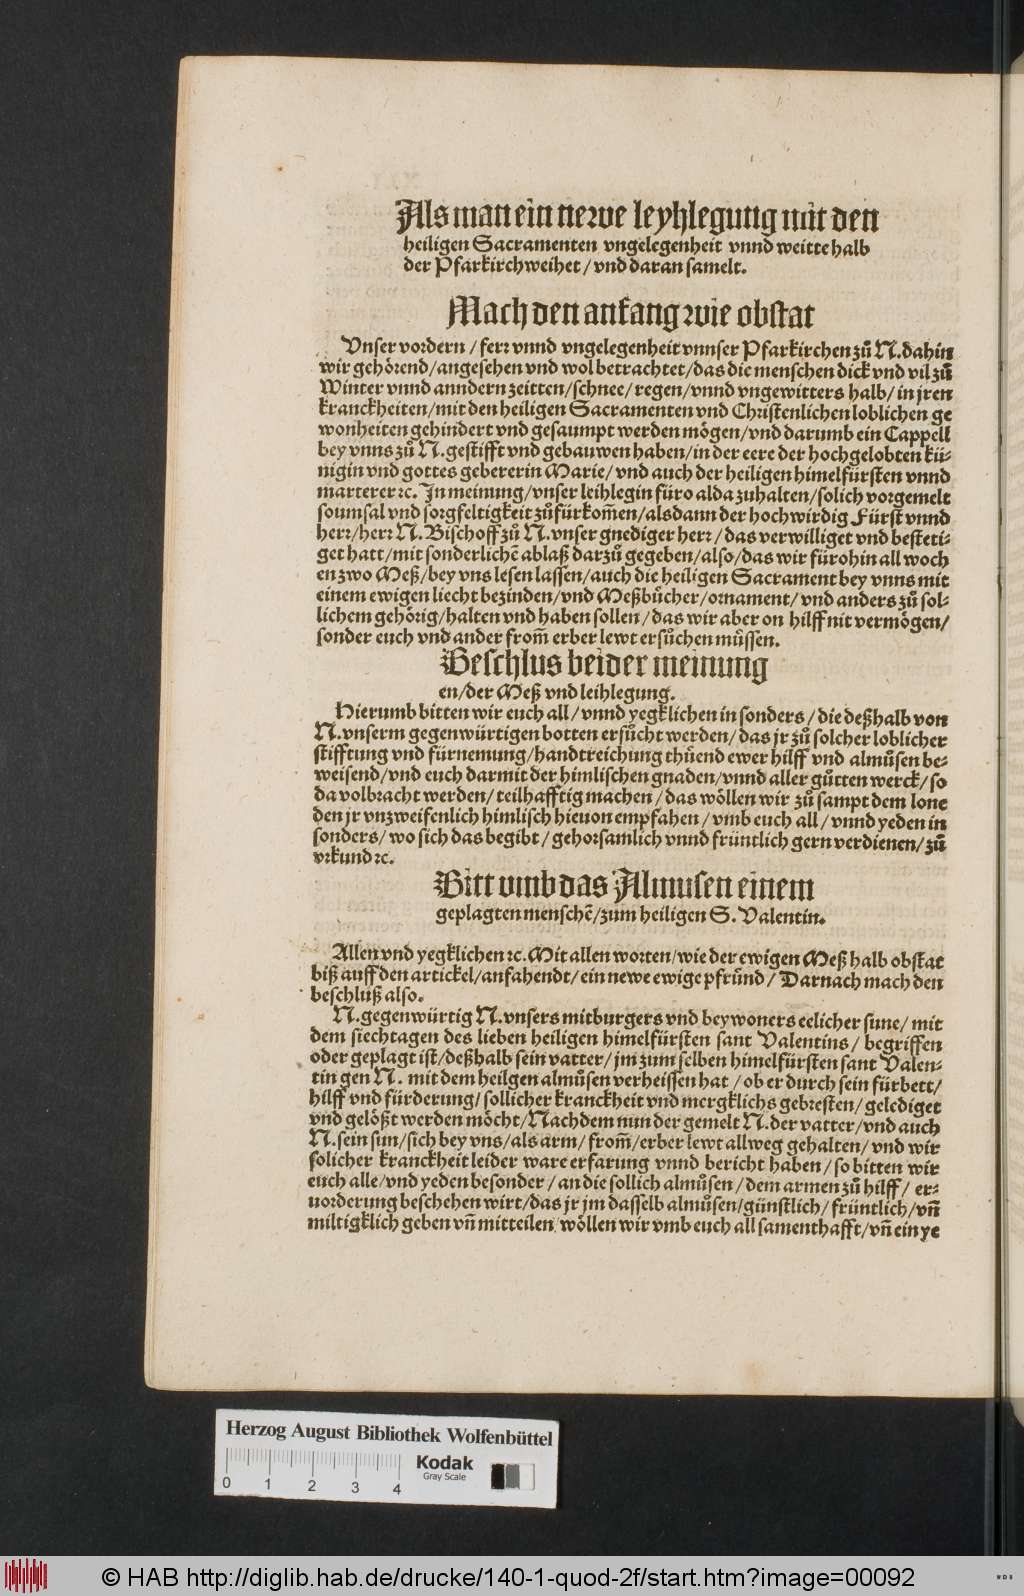 Als man ein newe leyhlegung mit den
heiligen Sacramenten vngelegenheit vnnd weitte halb
der Pfarkirchweihet / vnd daran samelt.
Mach den anfang wie obstat
Vnser vordern / ferr vnnd vngelegenheit vnnser Pfarkirchen zuͦ N. dahin
wir gehörend / angesehen vnd wol betrachtet / das die menschen dick vnd vil zuͦ
Winter vnnd anndern zeitten / schnee / regen / vnnd vngewitters halb / in jren
kranckheiten / mit den heiligen Sacramenten vnd Christenlichen loblichen ge
wonheiten gehindert vnd gesaumpt werden mögen / vnd darumb ein Cappell
bey vnns zuͦ N. gestifft vnd gebauwen haben / in der eere der hochgelobten kü⸗
nigin vnd gottes gebererin Marie / vnd auch der heiligen himelfürsten vnnd
marterer ꝛc. In meinung / vnser leihlegin füro alda zuhalten / solich vorgemelt
soumsal vnd sorgfeltigkeit zuͦfürkom̄en / als dann der hochwirdig Fürst vnnd
herr / herr N. Bischoff zuͦ N. vnser gnediger herr / das verwilliget vnd besteti⸗
get hatt / mit sonderlichē ablaß darzuͦ gegeben / also / das wir fürohin all woch
en zwo Meß / bey vns lesen lassen / auch die heiligen Sacrament bey vnns mit
einem ewigen liecht bezinden / vnd Meßbuͤcher / ornament / vnd anders zuͦ sol⸗
lichem gehörig / halten vnd haben sollen / das wir aber on hilff nit vermögen /
sonder euch vnd ander from̄ erber lewt ersuͦchen muͤssen.
Beschlus beider meinung
en / der Meß vnd leihlegung.
Hierumb bitten wir euch all / vnnd yegklichen in sonders / die deßhalb von
N. vnserm gegenwürtigen botten ersuͦcht werden / das jr zuͦ solcher loblicher
stifftung vnd fürnemung / handtreichung thuͤend ewer hilff vnd almuͦsen be⸗
weisend / vnd euch darmit der himlischen gnaden / vnnd aller guͦtten werck / so
da volbracht werden / teilhafftig machen / das wöllen wir zuͦ sampt dem lone
den jr vnzweifenlich himlisch hieuon empfahen / vmb euch all / vnnd yeden in
sonders / wo sich das begibt / gehorsamlich vnnd früntlich gern verdienen / zuͦ
vrkund ꝛc.
Bitt vmb das Almusen einem
geplagten menschē / zum heiligen S. Valentin.
Allen vnd yegklichen ꝛc. Mit allen worten / wie der ewigen Meß halb obstat
biß auff den artickel / anfahendt / ein newe ewige pfruͤnd / Darnach mach den
beschluß also.
N. gegenwürtig N. vnsers mitburgers vnd beywoners eelicher sune / mit
dem siechtagen des lieben heiligen himelfürsten sant Valentins / begriffen
oder geplagt ist / deßhalb sein vatter / jm zum selben himelfürsten sant Valen⸗
tin gen N. mit dem heilgen almuͦsen verheissen hat / ob er durch sein fürbett /
hilff vnd fürderung / sollicher kranckheit vnd mergklichs gebresten / gelediget
vnd gelößt werden möcht / Nachdem nun der gemelt N. der vatter / vnd auch
N. sein sun / sich bey vns / als arm / from̄ / erber lewt allweg gehalten / vnd wir
solicher kranckheit leider ware erfarung vnnd bericht haben / so bitten wir
euch alle / vnd yeden besonder / an die sollich almuͦsen / dem armen zuͦ hilff / er⸗
uorderung beschehen wirt / das jr jm dasselb almuͦsen / günstlich / früntlich / vn̄
miltigklich geben vn̄ mitteilen wöllen wir vmb euch all samenthafft / vn̄ ein ye
Herzog August Bibliothek Wolfenbüttel
Kodak
Gray Scale
0 1 2 3 4
© HAB http://diglib.hab.de/drucke/140-1-quod-2f/start.htm?image=00092